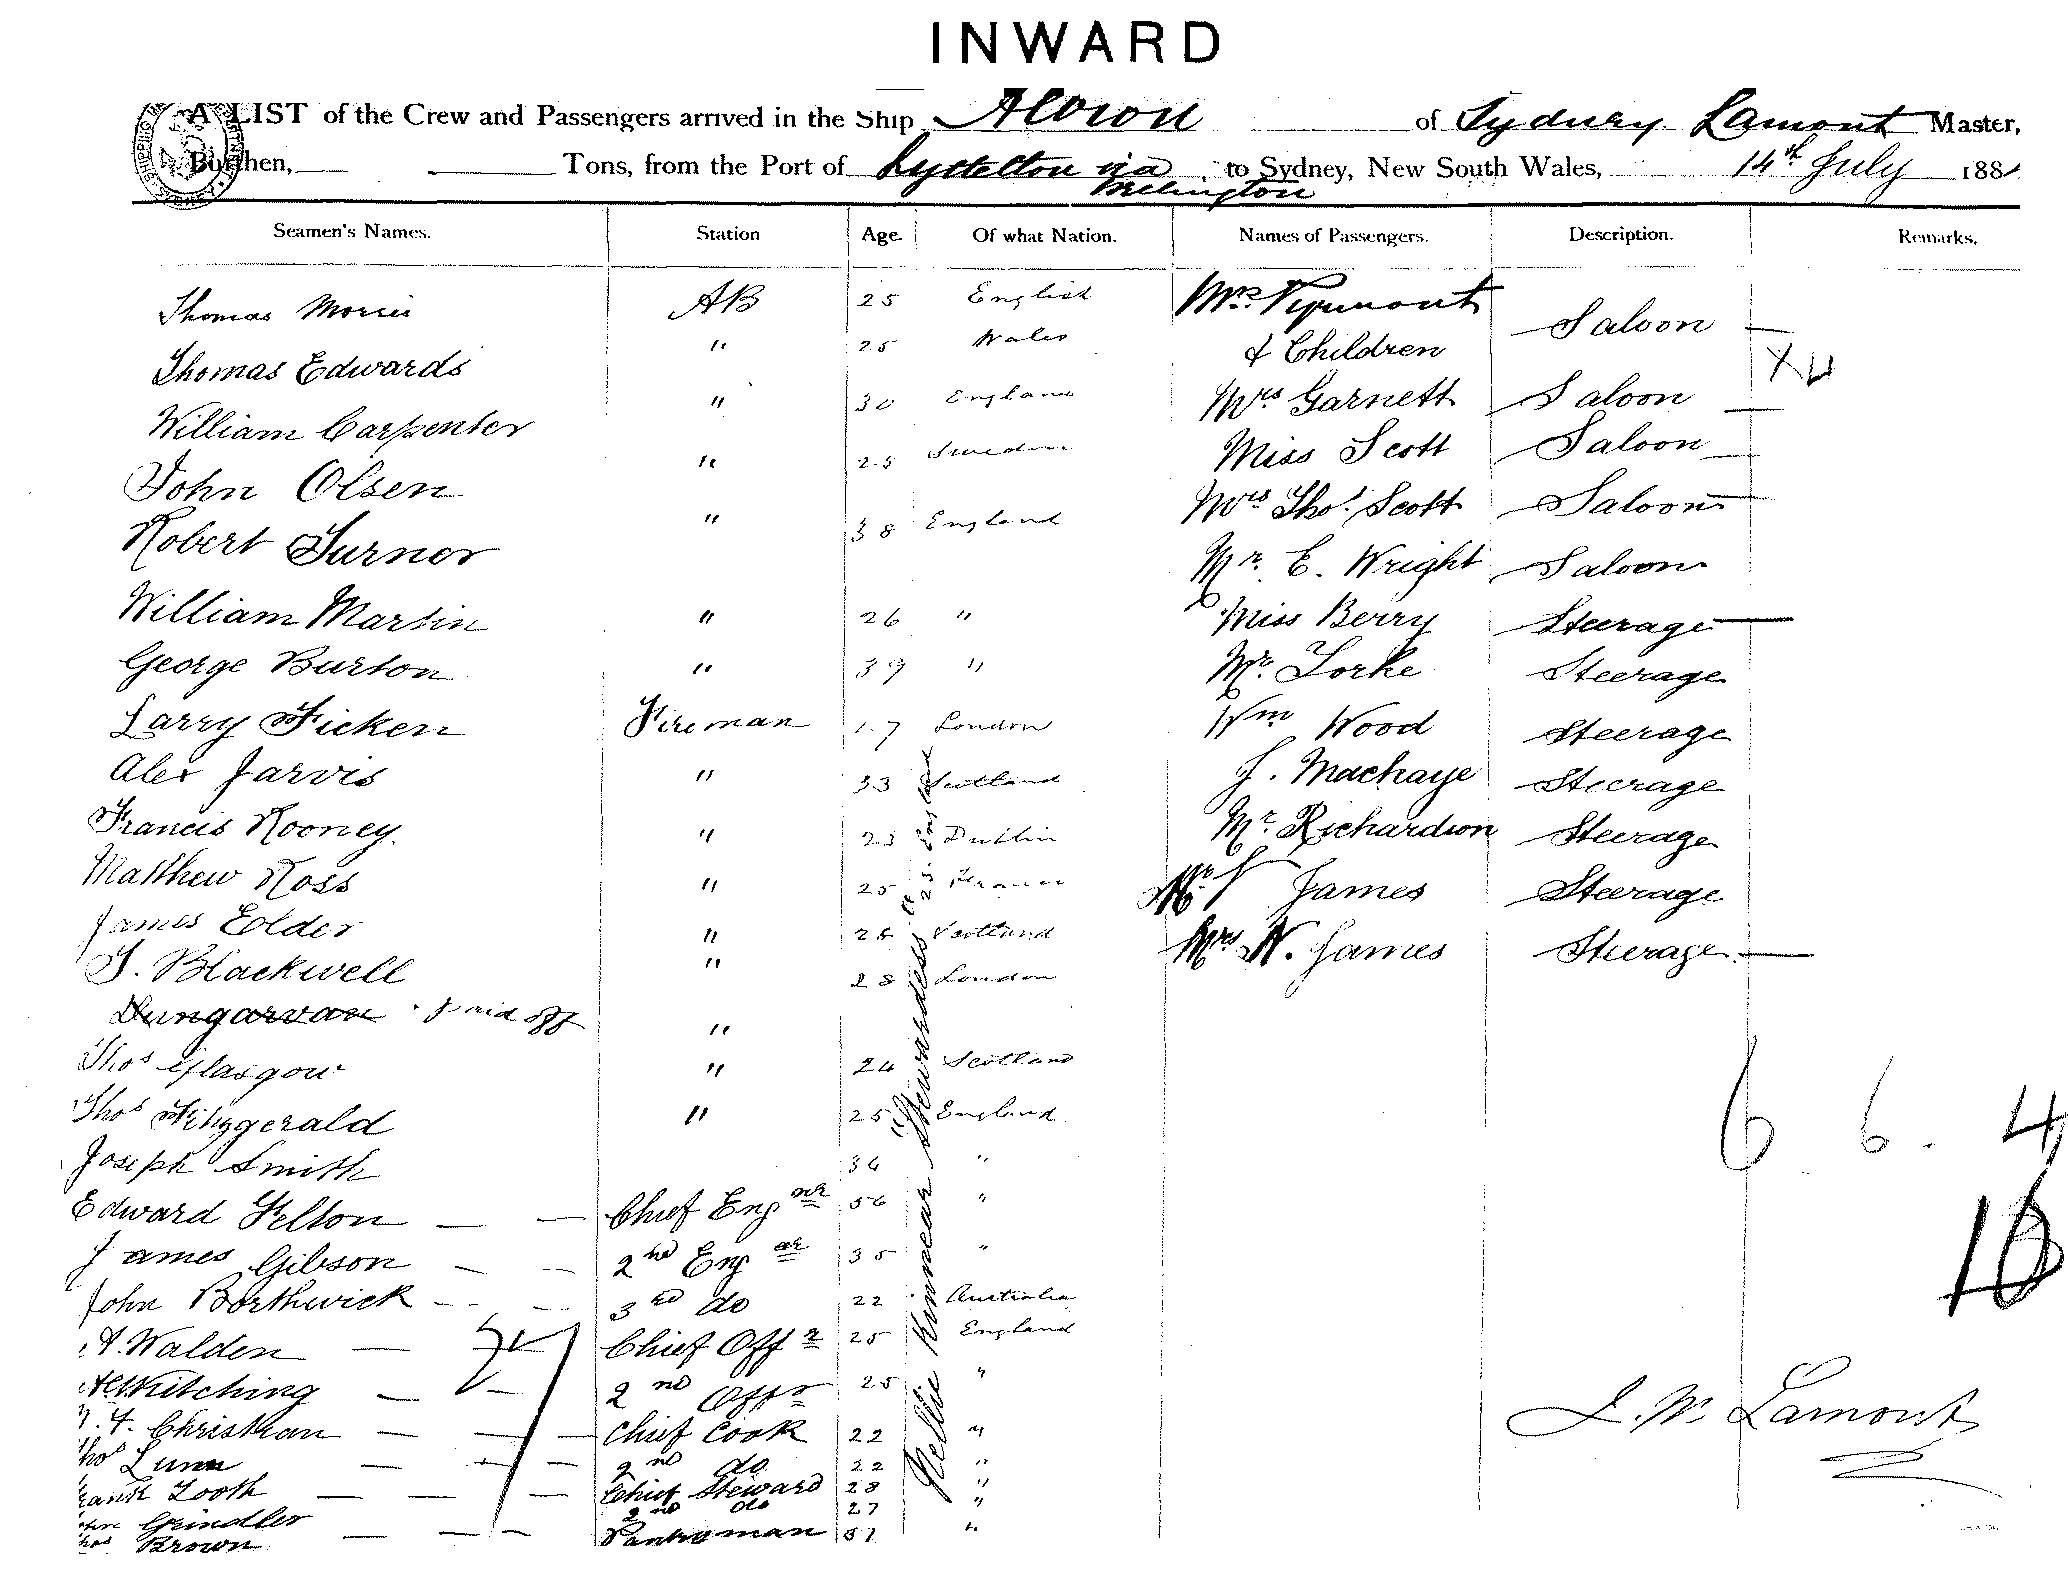 INWARD
A LIST of the Crew and Passengers arrived in the Ship Albion of Sydney Lamont Master,
Burthen, Tons, from the Port of Lyttelton via Wellington to Sydney, New South Wales, 14th July 188
Seamen's Names. Station Age. Of what Nation. Names of Passengers. Description. Remarks.
Thomas Morris AB 25 English Mrs & Children Saloon
Thomas Edwards " 25 Wales
William Carpenter " 30 England Mrs Garnett Saloon
John Olsen " 25 Sweden Miss Scott Saloon
Robert Turner " 38 England Mrs Thos. Scott Saloon
Mr. E. Wright Saloon
William Martin " 26 " Miss Berry Steerage
George Burton " 39 " Mr. Yorke Steerage
Larry Ficken Fireman 17 London Wm Wood Steerage
Alex Jarvis " 33 Scotland J. Mackaye Steerage
Francis Rooney " 23 Dublin Mr. Richardson Steerage
Matthew Ross " 25 France Mr James Steerage
James Eolder " 25 Scotland Mrs N. James Steerage
T. Blackwell " 28 London
Dungarvan paid off "
Thos Glasgow " 24 Scotland
Thos Fitzgerald " 25 England
Joseph Smith 34 "
Edward Felton Chief Engnr 56 "
James Gibson 2nd Eng 35 "
John Borthwick 3rd do 22 Australia
A. Walden Chief Offr 25 England
Kitching 2nd Offr 25 "
Christian Chief Cook 22 "
Thos Lunn 2nd do 22 "
Frank Tooth Chief Steward 28 "
Grindler 2nd do 27 "
Brown Pantryman "
Nellie Kinnear Stewardess 25 England
6 6. 4
16
J. W. Lamont